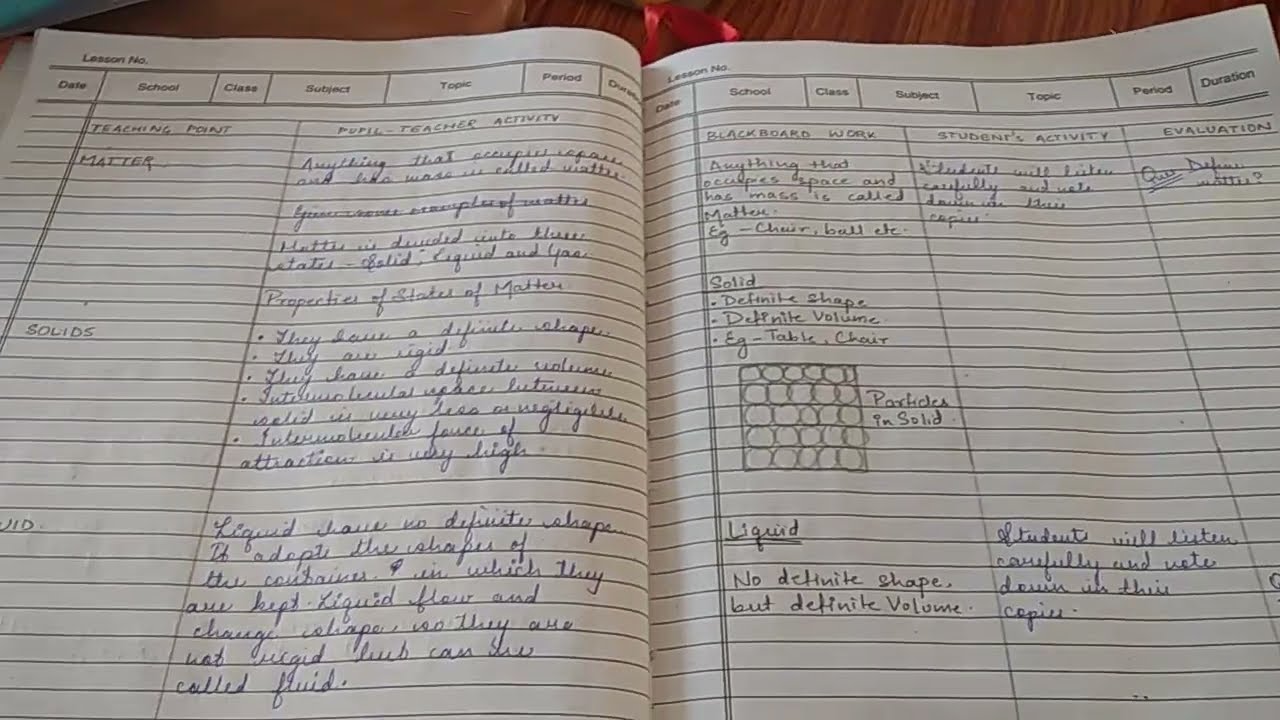 Lesson No.
Date School Class Subject Topic Period Duration
TEACHING POINT PUPIL-TEACHER ACTIVITY
MATTER
Anything that occupies space
and has mass is called matter.
Give some examples of matter
Matter is divided into three
states - Solid, Liquid and Gas
Properties of States of Matter
SOLIDS
• They have a definite shape.
• They are rigid
• They have a definite volume
• Intermolecular space between
solid is very less or negligible
• Intermolecular force of
attraction is very high.
UID
Liquid have no definite shape.
It adopts the shapes of
the container in which they
are kept. Liquid flow and
change shape so they are
not rigid but can be
called fluid.
Lesson No.
Date School Class Subject Topic Period Duration
BLACKBOARD WORK STUDENT'S ACTIVITY EVALUATION
Anything that
occupies space and
has mass is called
Matter.
Eg - Chair, ball etc.
Students will listen
carefully and note
down in their
copies.
Ques Define
matter?
Solid
• Definite Shape
• Definite Volume
• Eg - Table, Chair
Particles
in Solid.
Liquid
No definite shape,
but definite Volume.
Students will listen
carefully and note
down in their
copies.